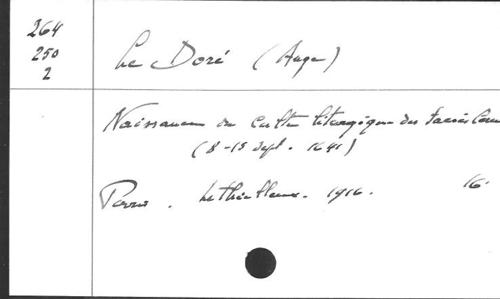 264
250
2
Le Doré (Ange)
Naissance du culte liturgique des Sacrés Coeu
(8-15 sept. 1641)
Paris. Lethielleux. 1916. 16°